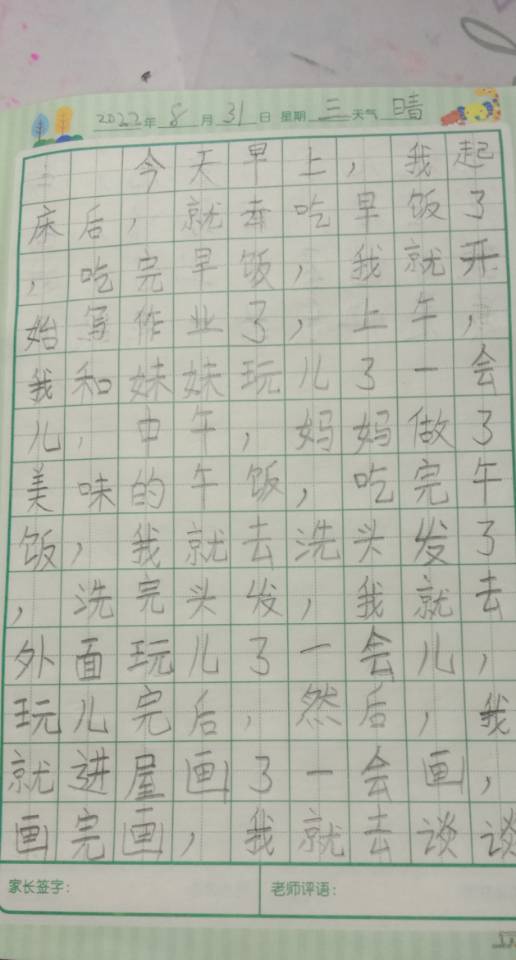 2022年8月31日 星期三天气晴
今天早上，我起
床后，就去吃早饭了
，吃完早饭，我就开
始写作业了，上午，
我和妹妹玩儿了一会
儿，中午，妈妈做了
美味的午饭，吃完午
饭，我就去洗头发了
，洗完头发，我就去
外面玩儿了一会儿，
玩儿完后，然后，我
就进屋画了一会画，
画完画，我就去谈谈
家长签字：
老师评语：